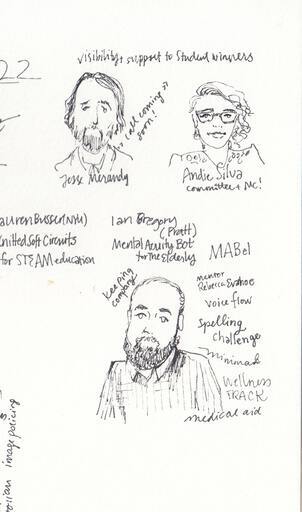 visibility + support to student winners
22
call coming soon!
Jesse Merandy
Andie Silva
committee + MC!
Lauren Busser (NYU)
Knitted Soft Circuits
for STEAM education
Ian Gregory
(Pratt)
Mental Acuity Bot
for the Elderly
MABel
keeping
company
mentor
Rebecca
voice flow
spelling
challenge
minimal
wellness
TRACK
medical aid
image policing